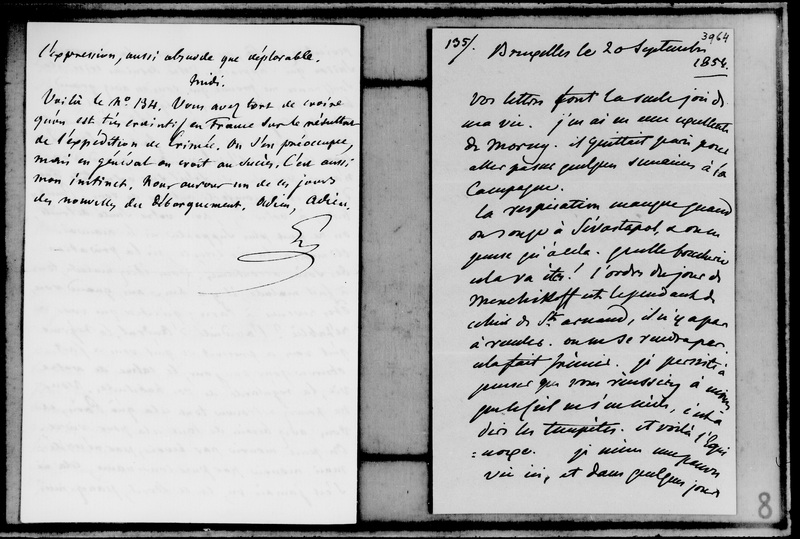 l'expression, aussi absurde que déplorable.
Midi.
Voilà le No 134. Vous avez tort de croire
qu'on est très craintif en France sur le résultat
de l'expédition de Crimée. On s'en préoccupe,
mais en général on croit au succès. C'est aussi
mon instinct. Nous aurons un de ces jours
des nouvelles du débarquement. Adieu, Adieu.
135/. Bruxelles le 20 Septembre
3964
1854.
vos lettres font la seule joie de
ma vie. j'en ai eu une excellente
de Morny. il quittait Paris pour
aller passer quelques semaines à la
Campagne.
la respiration manque quand
on songe à Sévastopol, & on ne
pense qu'à cela. quelle boucherie
cela va être! l'ordre du jour de
Menchikoff est le pendant de
celui de St Arnaud, il n'y a pas
à reculer. on ne se rendra pas
cela fait frémir. je persiste à
penser que vous réussirez à moins
que le ciel ne s'en mêle, c'est à
dire les tempêtes. et voilà l'équi
=noxe. je mène une pauvre
vie ici, et dans quelques jours
8